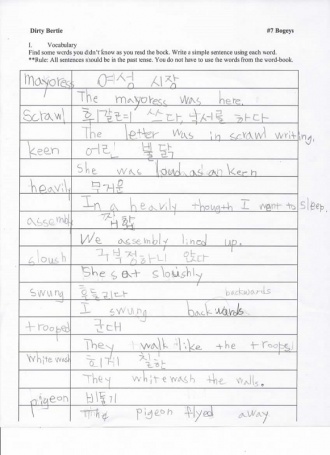 Dirty Bertie #7 Bogeys
I. Vocabulary
Find some words you didn't know as you read the book. Write a simple sentence using each word.
**Rule: All sentences should be in the past tense. You do not have to use the words from the word-book.
mayoress 여성 시장
The mayoress was here.
Scrawl 휘갈겨 쓰다, 낙서를 하다
The letter was in scrawl writing.
keen 어린 불닭
She was loud as an kern
heavily 무거운
In a heavily thougth I want to Sleep.
assembly 집합
We assembly lined up.
slouch 구부정하니 앉다
She sat sloushly
swung 흔들리다 backwards
I swung backwards
trooped 군대
They walk like the troops
White wash 희게 칠한
They white wash the walls.
pigeon 비둘기
The pigeon flyed away